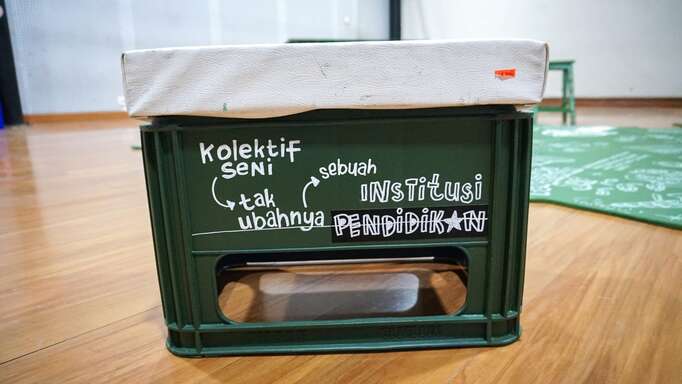 Kolektif
SENI
tak
ubahnya
sebuah
INSTITUSI
PENDIDIKAN